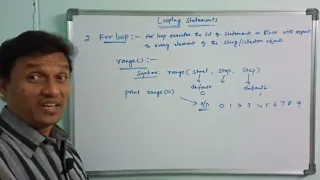 Looping Statements
2. For loop :- For loop executes the set of statements or Block with respect
to every element of the string/collection object.
range() :-
Syntax: range ( start, stop, step)
default default
0 1
print range(10)
O/P 0 1 2 3 4 5 6 7 8 9